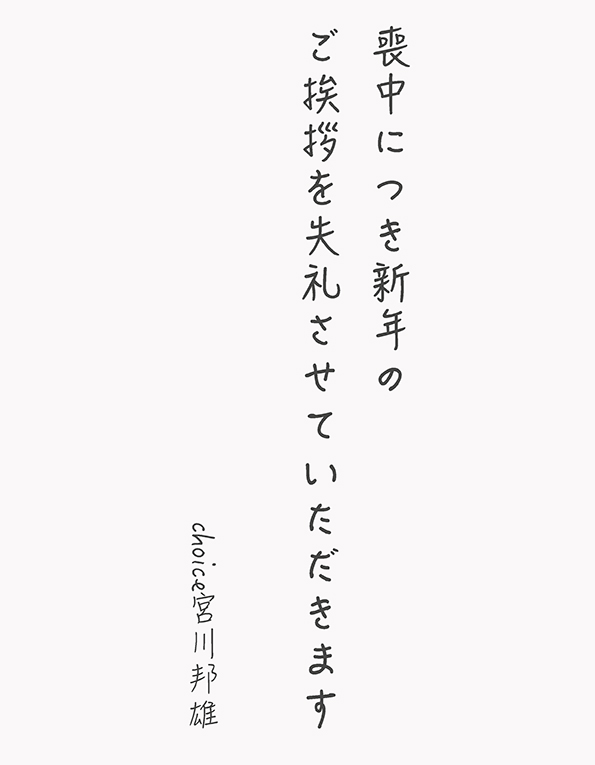 喪中につき新年の
ご挨拶を失礼させていただきます
choice宮川邦雄